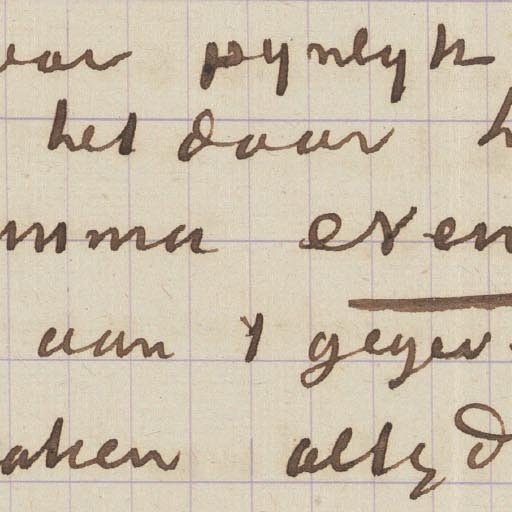 aar pynlyk
het daar h
mma even
aan 't gegev
aken altyd